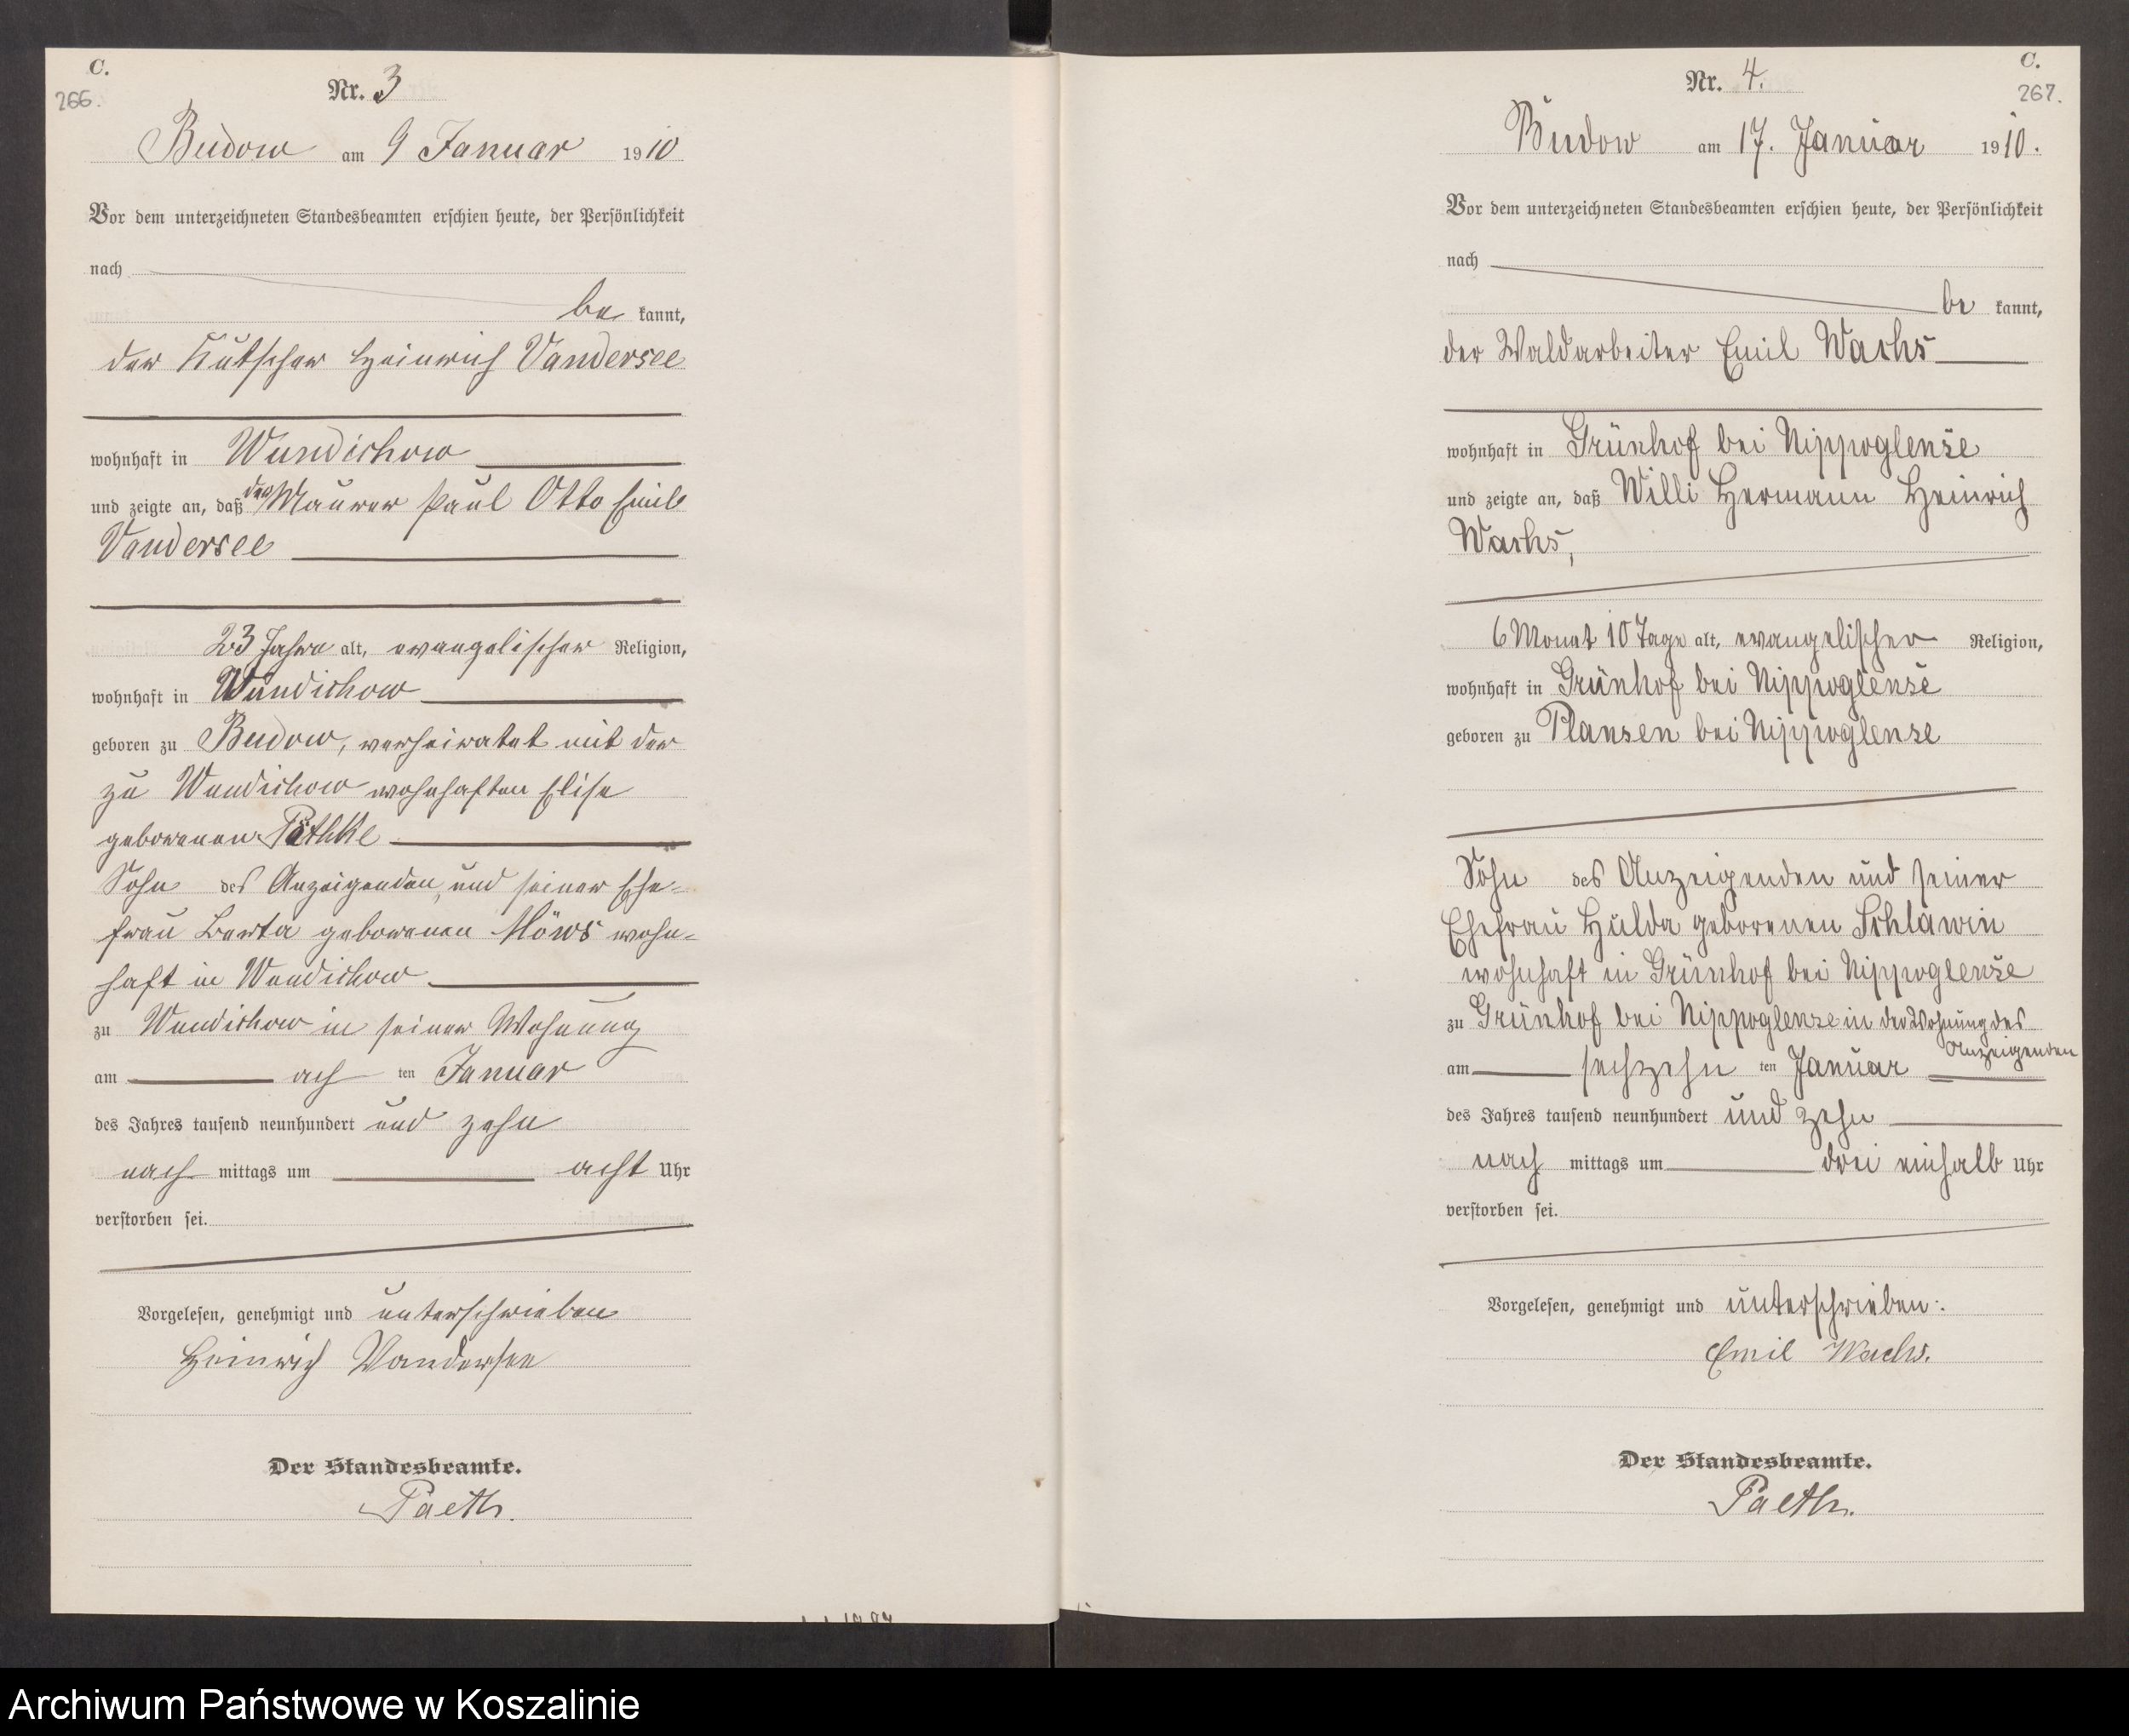 C.
266.
Nr. 3
Budow am 9 Januar 1910
Vor dem unterzeichneten Standesbeamten erschien heute, der Persönlichkeit
nach
be kannt,
der Kutscher Heinrich Vandersee
wohnhaft in Wundichow
und zeigte an, daß der Maurer Paul Otto Emil
Vandersee
23 Jahre alt, evangelischer Religion,
wohnhaft in Wundichow
geboren zu Budow, verheiratet mit der
zu Wundichow wohnhaften Elise
geborenen Pathke
Sohn des Anzeigenden, und seiner Ehe-
frau Berta geborenen Möws wohn-
haft in Wundichow
zu Wundichow in seiner Wohnung
am ach ten Januar
des Jahres tausend neunhundert und zehn
nach mittags um acht Uhr
verstorben sei.
Vorgelesen, genehmigt und unterschrieben
Heinrich Vandersee
Der Standesbeamte.
Paeth.
C.
267.
Nr. 4.
Budow am 17. Januar 1910.
Vor dem unterzeichneten Standesbeamten erschien heute, der Persönlichkeit
nach
be kannt,
der Waldarbeiter Emil Wachs
wohnhaft in Grünhof bei Nippoglense
und zeigte an, daß Willi Hermann Heinrich
Wachs,
6 Monat 10 Tage alt, evangelischer Religion,
wohnhaft in Grünhof bei Nippoglense
geboren zu Plansen bei Nippoglense
Sohn des Anzeigenden und seiner
Ehefrau Hulda geborenen Schlawin
wohnhaft in Grünhof bei Nippoglense
zu Grünhof bei Nippoglense in der Wohnung des
Anzeigenden
am sechzehn ten Januar
des Jahres tausend neunhundert und zehn
nach mittags um drei einhalb Uhr
verstorben sei.
Vorgelesen, genehmigt und unterschrieben.
Emil Wachs.
Der Standesbeamte.
Paeth.
Archiwum Państwowe w Koszalinie